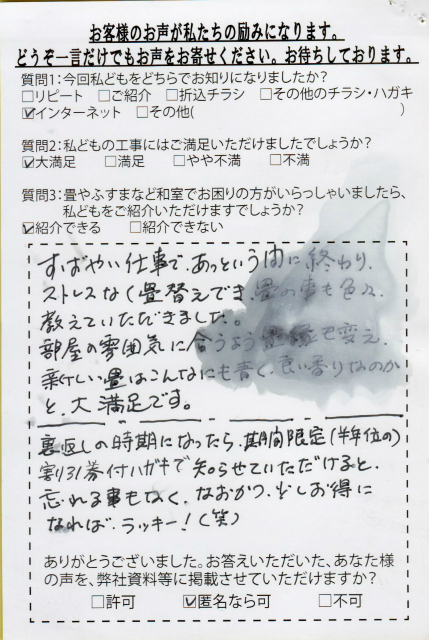 お客様のお声が私たちの励みになります。
どうぞ一言だけでもお声をお寄せください。お待ちしております。
質問1:今回私どもをどちらでお知りになりましたか?
□リピート □ご紹介 □折込チラシ □その他のチラシ・ハガキ
☑インターネット □その他( )
質問2:私どもの工事にはご満足いただけましたでしょうか?
☑大満足 □満足 □やや不満 □不満
質問3:畳やふすまなど和室でお困りの方がいらっしゃいましたら、
私どもをご紹介いただけますでしょうか?
☑紹介できる □紹介できない
すばやい仕事で、あっという間に終わり、
ストレスなく畳替えでき、畳の事も色々、
教えていただきました。
部屋の雰囲気に合うよう畳縁も変え、
新しい畳はこんなにも青く、良い香りなのか
と、大満足です。
裏返しの時期になったら、期間限定(半年位の)
割引券付ハガキで知らせていただけると、
忘れる事もなく、なおかつ、少しお得に
なれば、ラッキー!(笑)
ありがとうございました。お答えいただいた、あなた様
の声を、弊社資料等に掲載させていただけますか?
□許可 ☑匿名なら可 □不可